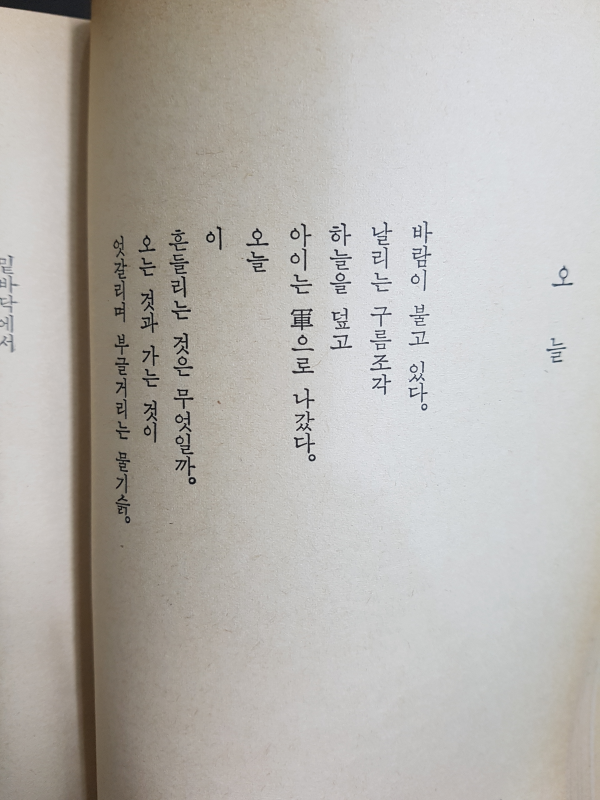 오늘
바람이 불고 있다.
날리는 구름조각
하늘을 덮고
아이는 軍으로 나갔다.
오늘
이
흔들리는 것은 무엇일까.
오는 것과 가는 것이
엇갈리며 부글거리는 물기슭.
밑바닥에서